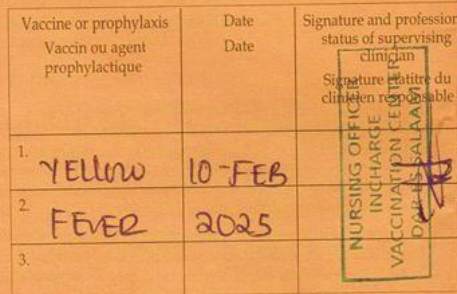 Vaccine or prophylaxis
Vaccin ou agent
prophylactique
Date
Date
Signature and profession
status of supervising
clinician
Signature et titre du
clinicien responsable
1. YELLOW 10-FEB
2. FEVER 2025
3.
NURSING OFFICER
INCHARGE
VACCINATION CENTER
DAR ES SALAAM